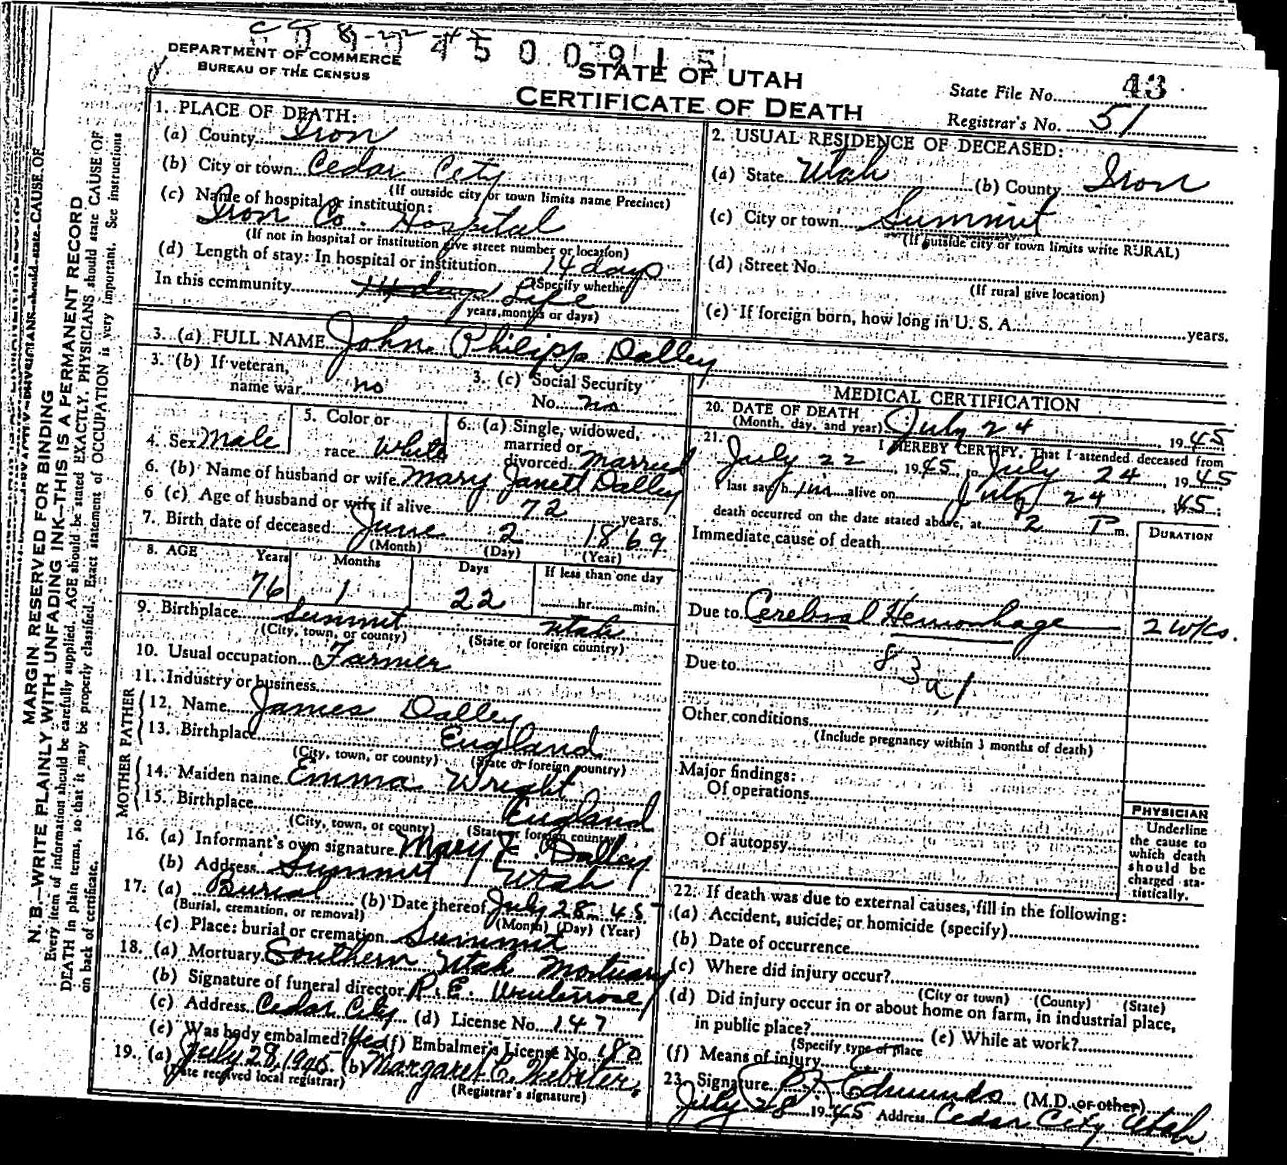 45 00915
DEPARTMENT OF COMMERCE
BUREAU OF THE CENSUS
STATE OF UTAH
CERTIFICATE OF DEATH
State File No. 43
Registrar's No. 51
1. PLACE OF DEATH:
(a) County Iron
(b) City or town Cedar City
(If outside city or town limits name Precinct)
(c) Name of hospital or institution:
Iron Co. Hospital
(If not in hospital or institution give street number or location)
(d) Length of stay: In hospital or institution 14 days
(Specify whether
In this community 14 days Life
years, months or days)
2. USUAL RESIDENCE OF DECEASED:
(a) State Utah (b) County Iron
(c) City or town Summit
(If outside city or town limits write RURAL)
(d) Street No.
(If rural give location)
(e) If foreign born, how long in U. S. A. years.
3. (a) FULL NAME John Philipp Dalley
3. (b) If veteran,
name war no
3. (c) Social Security
No. no
4. Sex Male
5. Color or
race White
6. (a) Single, widowed,
married or
divorced Married
6. (b) Name of husband or wife Mary Janett Dalley
6 (c) Age of husband or wife if alive 72 years.
7. Birth date of deceased June 2 1869
(Month) (Day) (Year)
8. AGE Years Months Days If less than one day
76 1 22 hr. min.
9. Birthplace Summit Utah
(City, town, or county) (State or foreign country)
10. Usual occupation Farmer
11. Industry or business
FATHER
12. Name James Dalley
13. Birthplace England
(City, town, or county) (State or foreign country)
MOTHER
14. Maiden name Emma Wright
15. Birthplace England
(City, town, or county) (State or foreign country)
16. (a) Informant's own signature Mary J. Dalley
(b) Address Summit, Utah
17. (a) Burial (b) Date thereof July 28 45
(Burial, cremation, or removal) (Month) (Day) (Year)
(c) Place: burial or cremation Summit
18. (a) Mortuary Southern Utah Mortuary
(b) Signature of funeral director P. E.
(c) Address Cedar City (d) License No. 147
(e) Was body embalmed? Yes (f) Embalmer's License No. 180
19. (a) July 28, 1945 (b) Margaret C. Webster
(Date received local registrar) (Registrar's signature)
MEDICAL CERTIFICATION
20. DATE OF DEATH
(Month, day, and year) July 24 1945
21. I HEREBY CERTIFY, That I attended deceased from
July 22 1945 to July 24 1945
I last saw him alive on July 24, 45;
death occurred on the date stated above, at 2 P m.
DURATION
Immediate cause of death
Due to Cerebral Hemorrhage 2 wks.
Due to 83a1
Other conditions
(Include pregnancy within 3 months of death)
Major findings:
Of operations
Of autopsy
PHYSICIAN
Underline
the cause to
which death
should be
charged sta-
tistically.
22. If death was due to external causes, fill in the following:
(a) Accident, suicide, or homicide (specify)
(b) Date of occurrence
(c) Where did injury occur?
(City or town) (County) (State)
(d) Did injury occur in or about home on farm, in industrial place,
in public place? (e) While at work?
(Specify type of place
(f) Means of injury
23. Signature Edmunds (M.D. or other)
July 28 1945 Address Cedar City Utah
MARGIN RESERVED FOR BINDING
N. B.—WRITE PLAINLY WITH UNFADING INK—THIS IS A PERMANENT RECORD
Every item of information should be carefully supplied. AGE should be stated EXACTLY. PHYSICIANS should state CAUSE OF
DEATH in plain terms, so that it may be properly classified. Exact statement of OCCUPATION is very important. See instructions
on back of certificate.